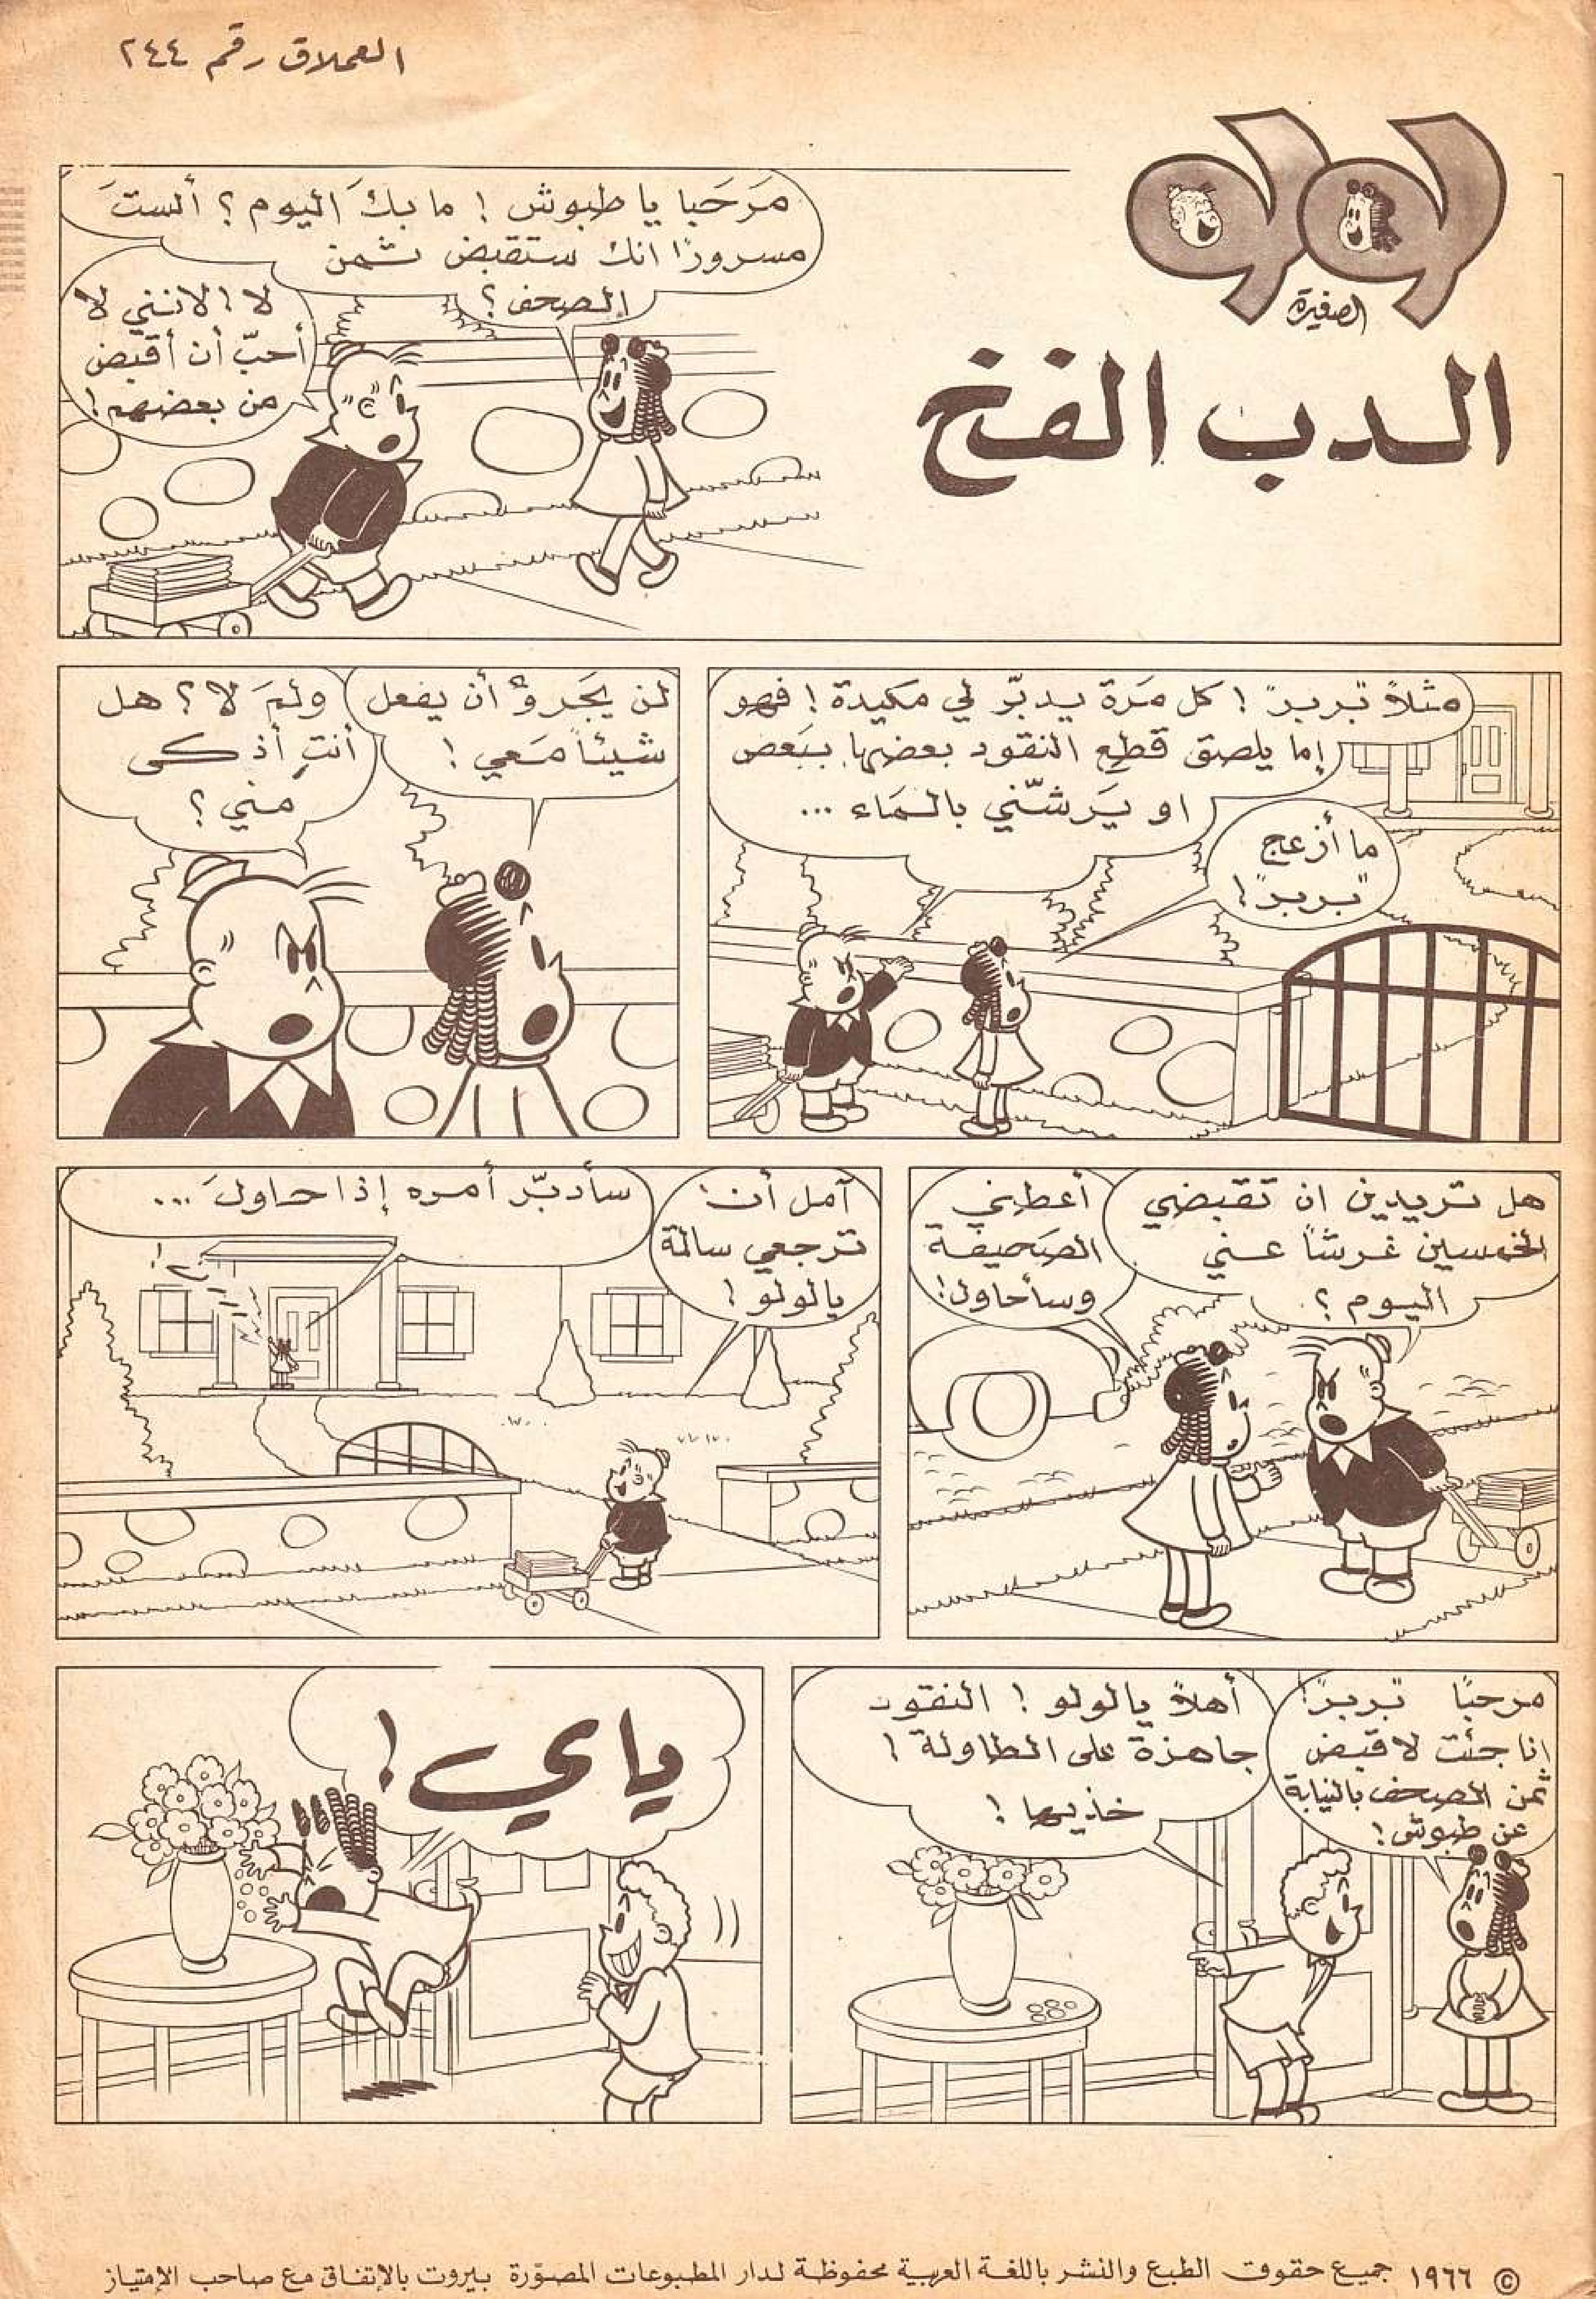 العملاق رقم ٢٤٤
لولو
الصغيرة
الدب الفخ
مَرحَبا يا طبوش ! ما بكَ اليوم ؟ ألستَ
مسرورًا انك ستقبض ثمن
الصحف ؟
لا ! لانني لا
أحبّ أن أقبض
من بعضهم !
مثلاً "بربر" ! كل مَرة يدبّر لي مكيدة ! فهو
إما يلصق قطع النقود بعضها ببَعض
او يَرشّني بالمَاء ...
ما أزعج
"بربر" !
لن يَجَرؤ أن يفعل
شيئاً مَعي !
ولمَ لا ؟ هل
أنتِ أذكى
مني ؟
هل تريدين ان تقبضي
الخمسين غرشاً عني
اليوم ؟
أعطني
الصَحيفة
وسأحاول !
آمل أن
ترجعي سالمة
يا لولو !
سأدبّر أمره إذا حاولَ ...
مرحبًا "بربر" !
انا جئت لاقبض
ثمن الصحف بالنيابة
عن طبوش !
أهلاً يا لولو ! النقود
جاهزة على الطاولة !
خذيها !
ياي !
© ١٩٦٦ جميع حقوق الطبع والنشر باللغة العربية محفوظة لدار المطبوعات المصوّرة بيروت بالإتفاق مع صاحب الإمتياز